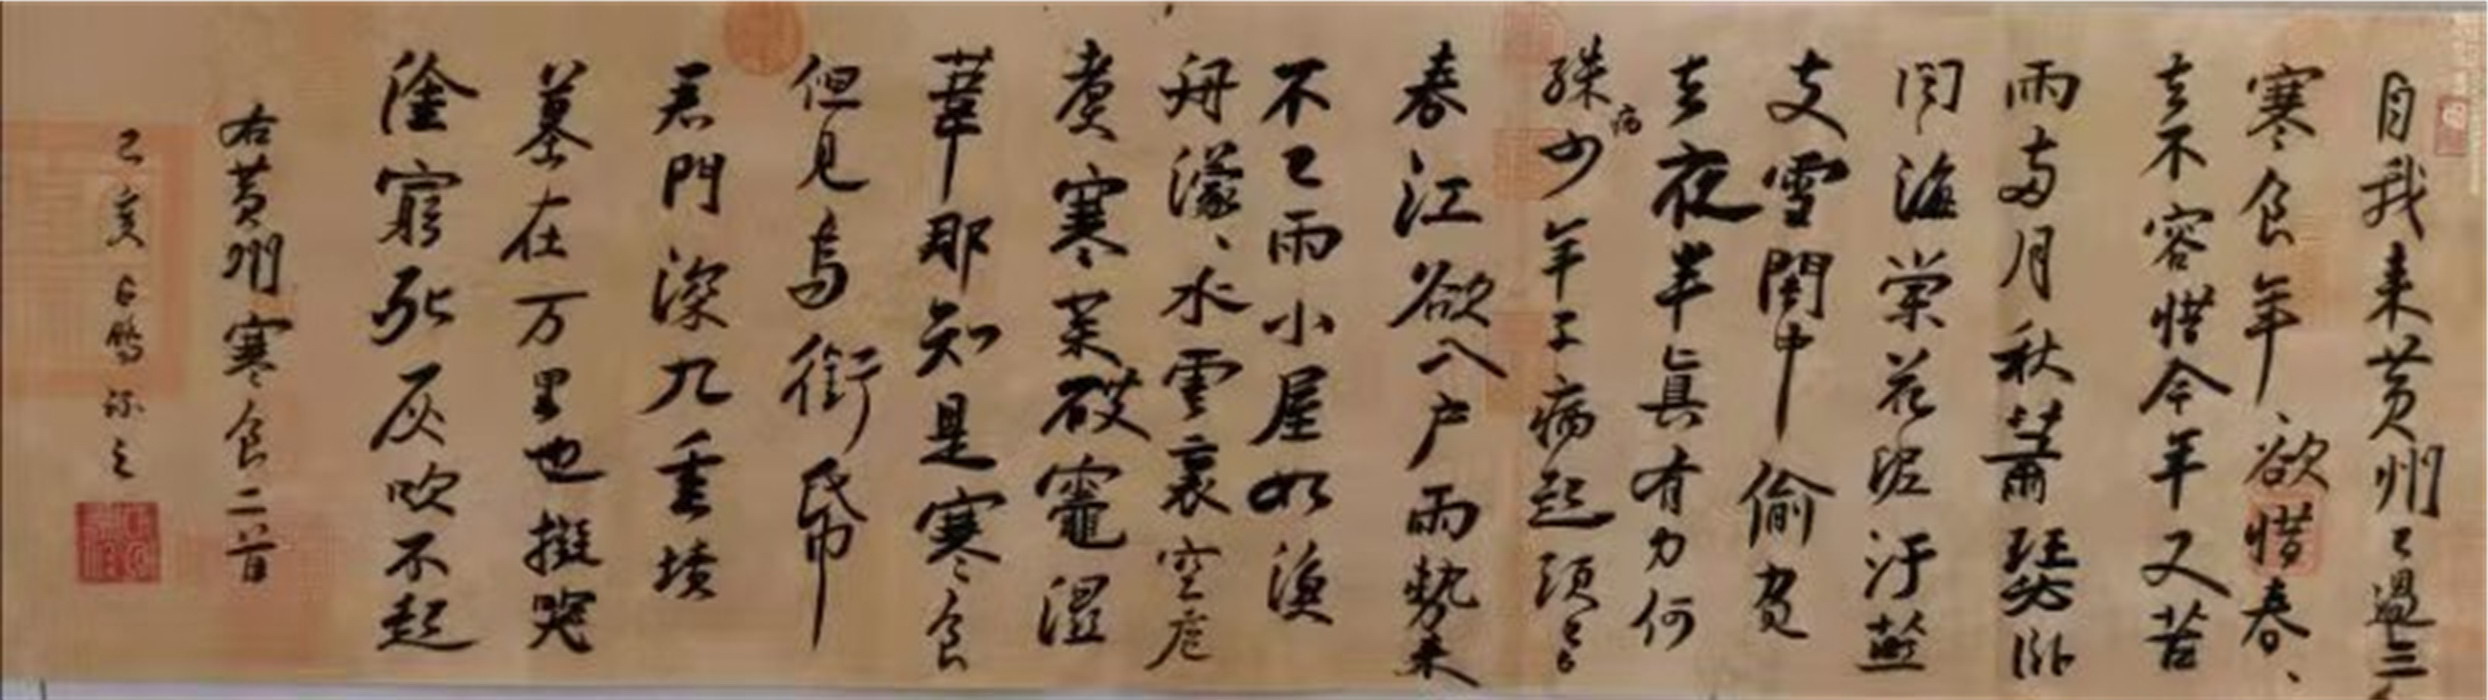 自我来黄州已過三
寒食年、欲惜春、
去不容惜今年又苦
雨兩月秋蕭瑟卧
闻海棠花泥汙燕
支雪闇中偷負
去夜半真有力何
殊病少年子病起須已白
春江欲入户雨勢来
不已雨小屋如漁
舟濛、水雲裏空庖
煮寒菜破竈溼
葦那知是寒食
但見烏銜帋
君門深九重墳
墓在万里也擬哭
塗窮死灰吹不起
右黄州寒食二首
己亥 之